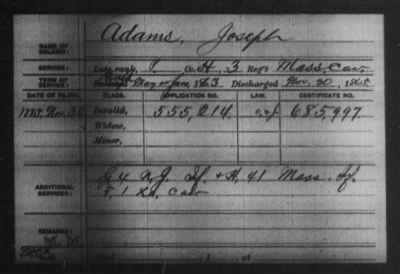 Adams, Joseph
NAME OF SOLDIER:
SERVICE: Late rank, P. Co. H, 3 Reg't Mass. Cav.
TERM OF SERVICE: Enlisted May or Jan, 1863 Discharged Nov. 30, 1865
DATE OF FILING. CLASS. APPLICATION NO. LAW. CERTIFICATE NO.
Nov. 30 Invalid, 555,214. 685,997.
Widow,
Minor,
ADDITIONAL SERVICES: G 4 N.J. If. + H, 41 Mass. If.
F, 1 La. Cav
REMARKS: